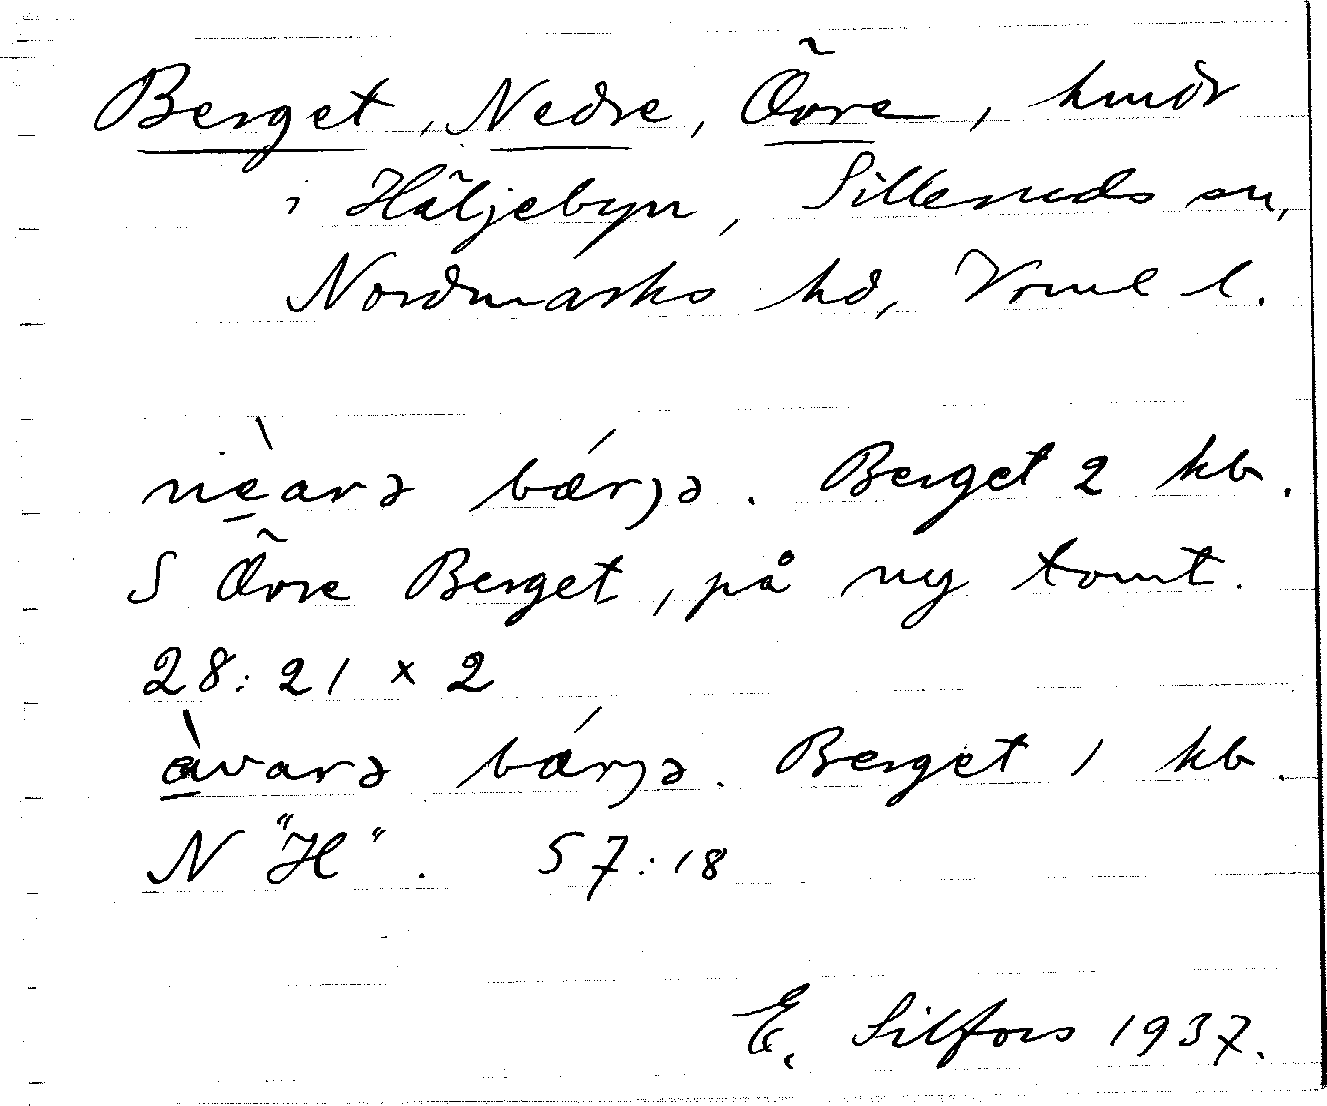 Berget, Nedre, Övre, hmdr
i Häljebyn, Silleruds sn,
Nordmarks hd, Vrml l.
nè̱arə bǽrjə. Berget 2 kb.
S Övre Berget, på ny tomt.
28:21 x 2
à̱varə bǽrjə. Berget 1 kb.
N "H". 57:18
E. Silfors 1937.